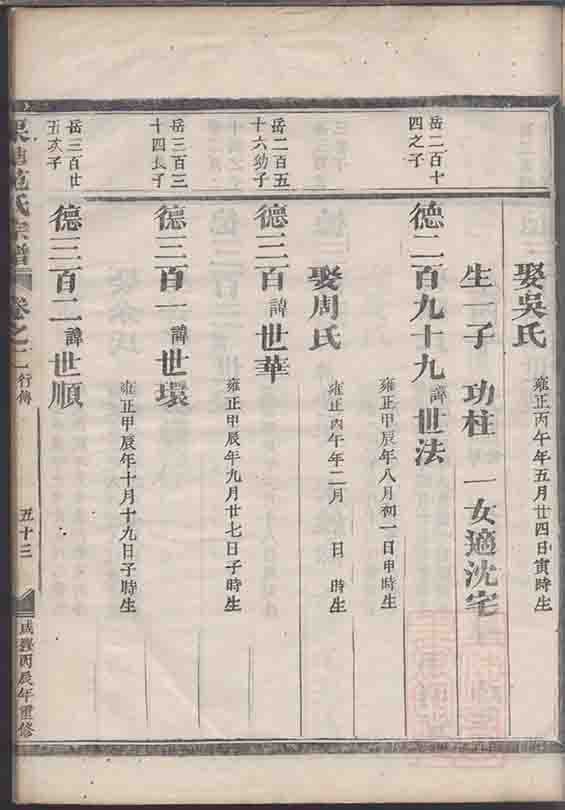 娶吳氏
雍正丙午年五月廿四日寅時生
生一子 功柱 一女適沈宅
岳二百十
四之子
德二百九十九諱世法
雍正甲辰年八月初一日申時生
娶周氏
雍正丙午年二月 日 時生
岳二百五
十六幼子
德三百諱世華
雍正甲辰年九月廿七日子時生
岳三百三
十四長子
德三百一諱世環
雍正甲辰年十月十九日子時生
岳三百廿
五次子
德三百二諱世順
氏宗譜 卷之二 行傳 五十三 咸豐丙辰年重修